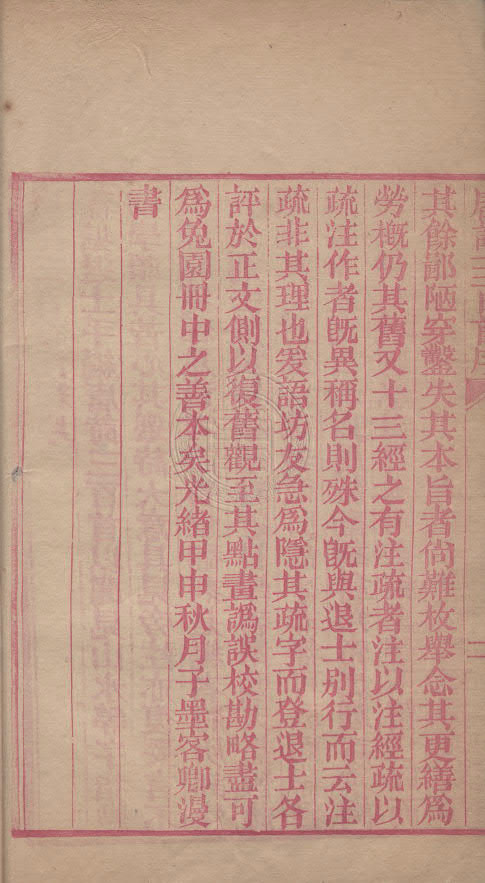 其餘鄙陋穿鑿失其本旨者尚難枚舉念其更繕爲
勞概仍其舊又十三經之有注疏者注以注經疏以
疏注作者既異稱名則殊今既與退士別行而云注
疏非其理也爰語坊友急爲隱其疏字而登退士各
評於正文側以復舊觀至其點畫譌誤校勘略盡可
爲兔園冊中之善本矣光緒甲申秋月子墨客卿漫
書